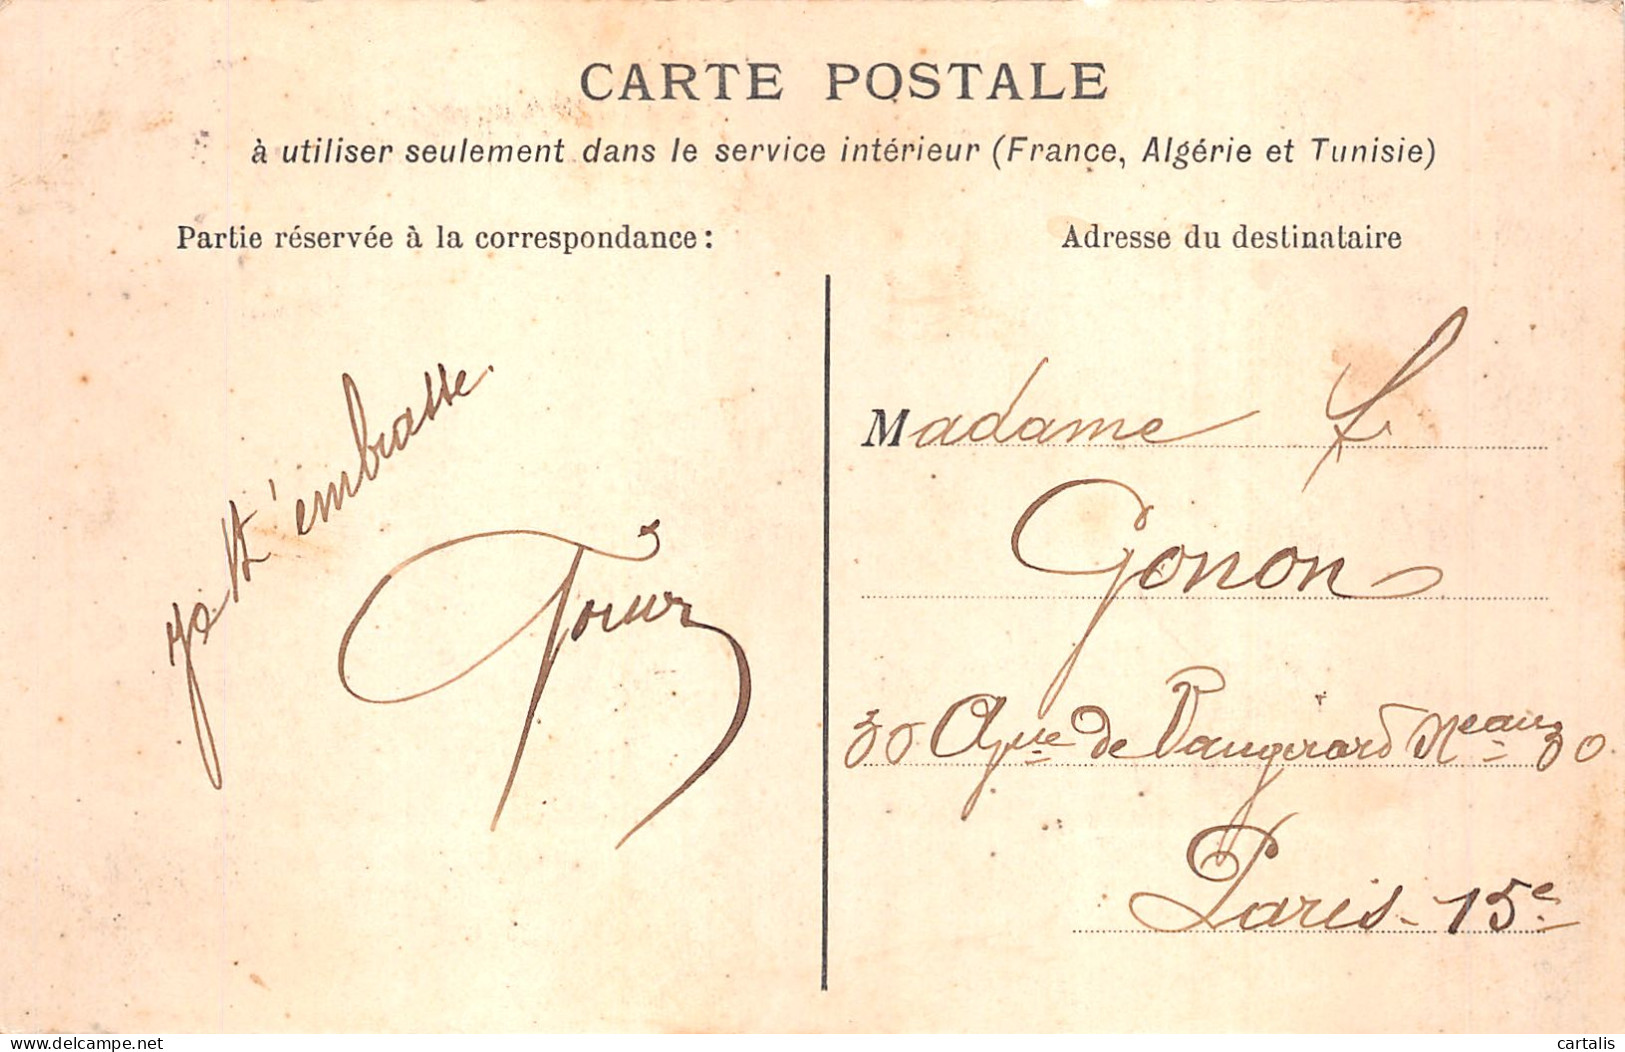 CARTE POSTALE
à utiliser seulement dans le service intérieur (France, Algérie et Tunisie)
Partie réservée à la correspondance :
Adresse du destinataire
Je t'embrasse.
Madame F
Gonon
30 de Vaugirard Neau 30
Paris 15e
delcampe.net
cartalis